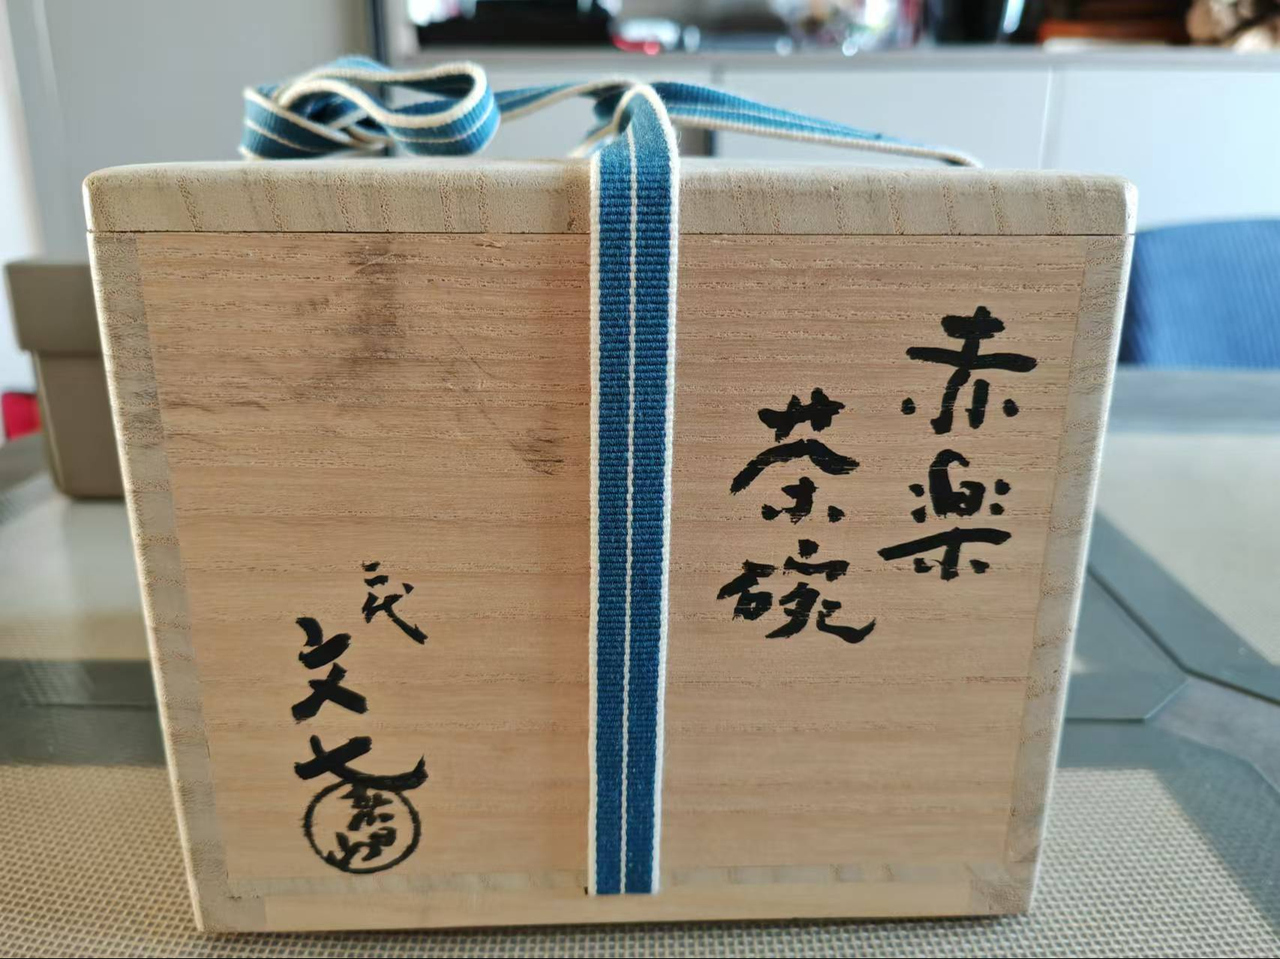 赤楽
茶碗
二代
文七